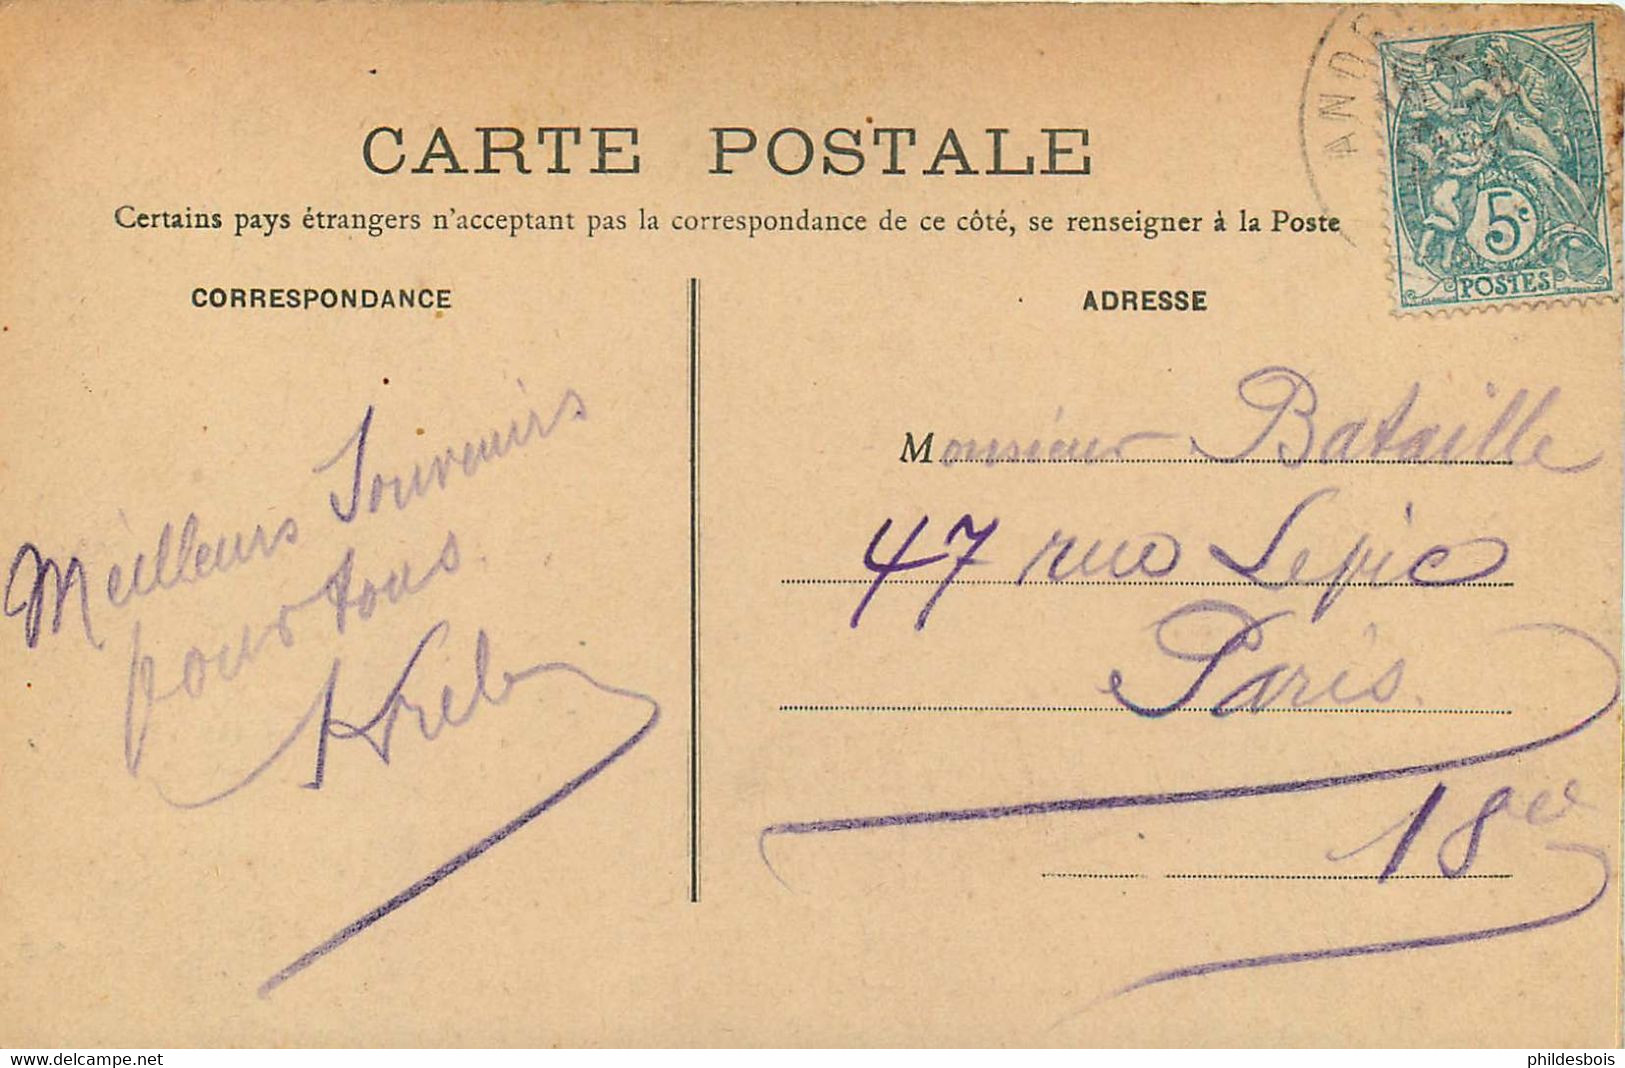 CARTE POSTALE
Certains pays étrangers n'acceptant pas la correspondance de ce côté, se renseigner à la Poste
CORRESPONDANCE
Meilleurs Souvenirs
pour tous.
ADRESSE
Monsieur Bataille
47 rue Lepic
Paris.
18e
AND
5c
POSTES
delcampe.net
phildesbois